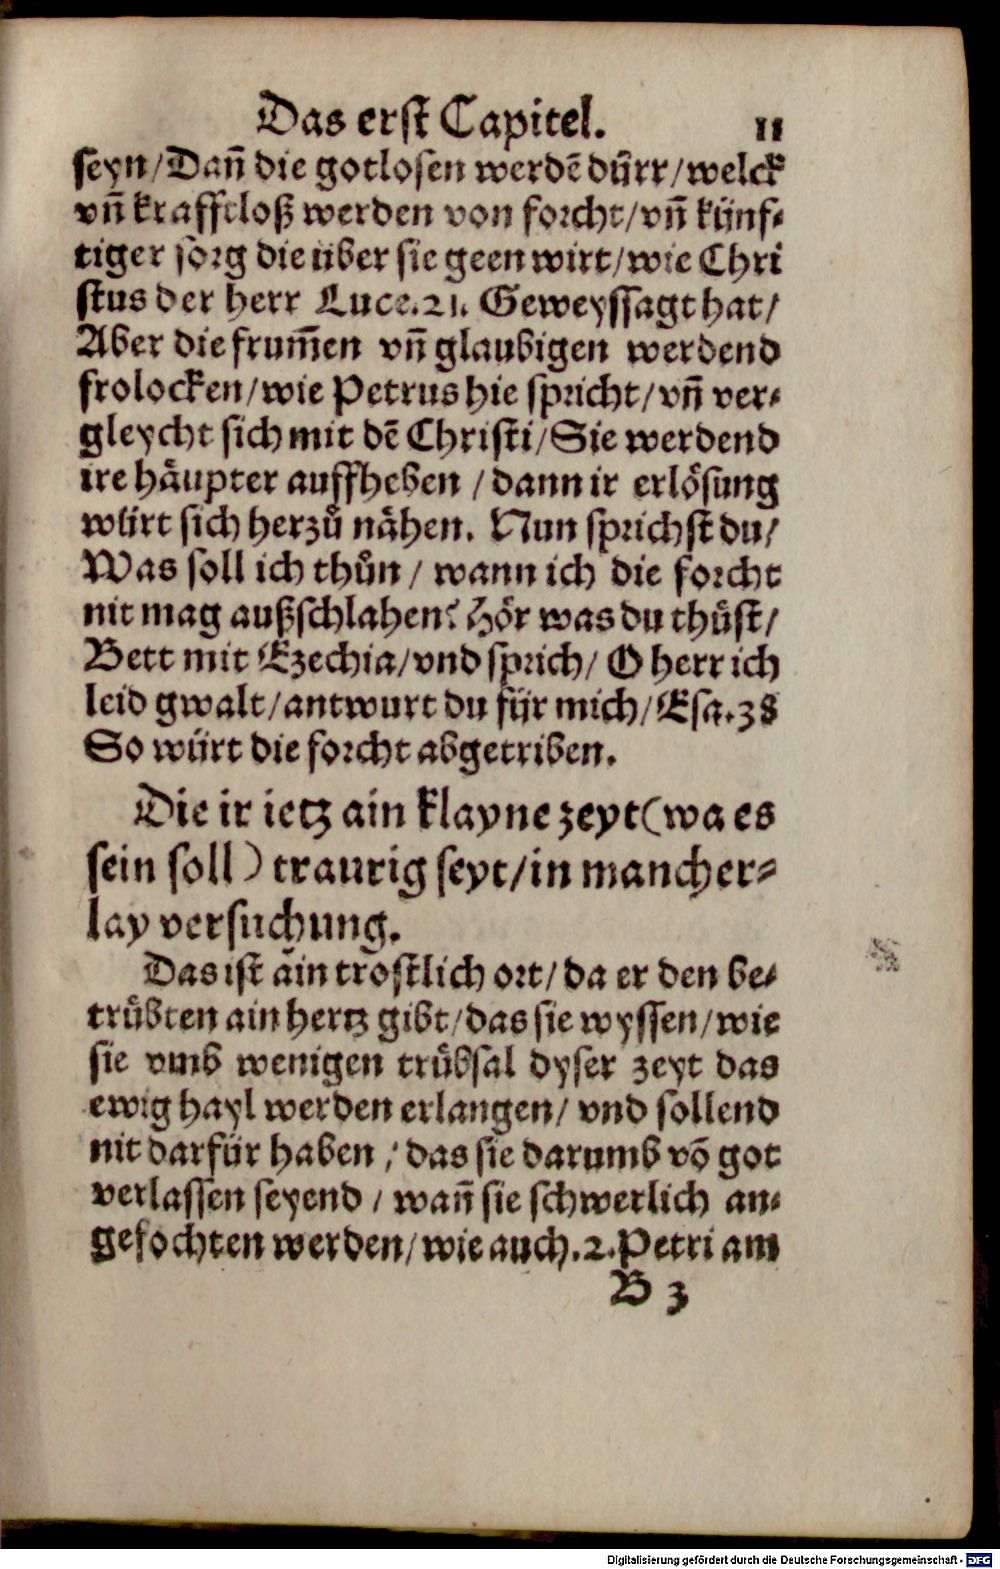 Das erst Capitel. 11
seyn/Dañ die gotlosen werdẽ dürr/welck
vñ krafftloß werden von forcht/vñ künf⸗
tiger sorg die über sie geen wirt/wie Chri
stus der herr Luce.21. Geweyssagt hat/
Aber die frum̃en vñ glaubigen werdend
frolocken/wie Petrus hie spricht/vñ ver⸗
gleycht sich mit dẽ Christi/Sie werdend
ire häupter auffheben / dann ir erlösung
würt sich herzů nähen. Nun sprichst du/
Was soll ich thůn / wann ich die forcht
nit mag außschlahen? Hör was du thůst/
Bett mit Ezechia/vnd sprich/ O herr ich
leid gwalt/antwurt du für mich/Esa.38
So würt die forcht abgetriben.
Die ir ietz ain klayne zeyt(wa es
sein soll) traurig seyt/in mancher⸗
lay versuchung.
Das ist ain trostlich ort/da er den be⸗
trůbten ain hertz gibt/das sie wyssen/wie
sie vmb wenigen trůbsal dyser zeyt das
ewig hayl werden erlangen/ vnd sollend
nit darfür haben / das sie darumb võ got
verlassen seyend / wañ sie schwerlich an⸗
gefochten werden/wie auch.2.Petri am
B 3
Digitalisierung gefördert durch die Deutsche Forschungsgemeinschaft - DFG